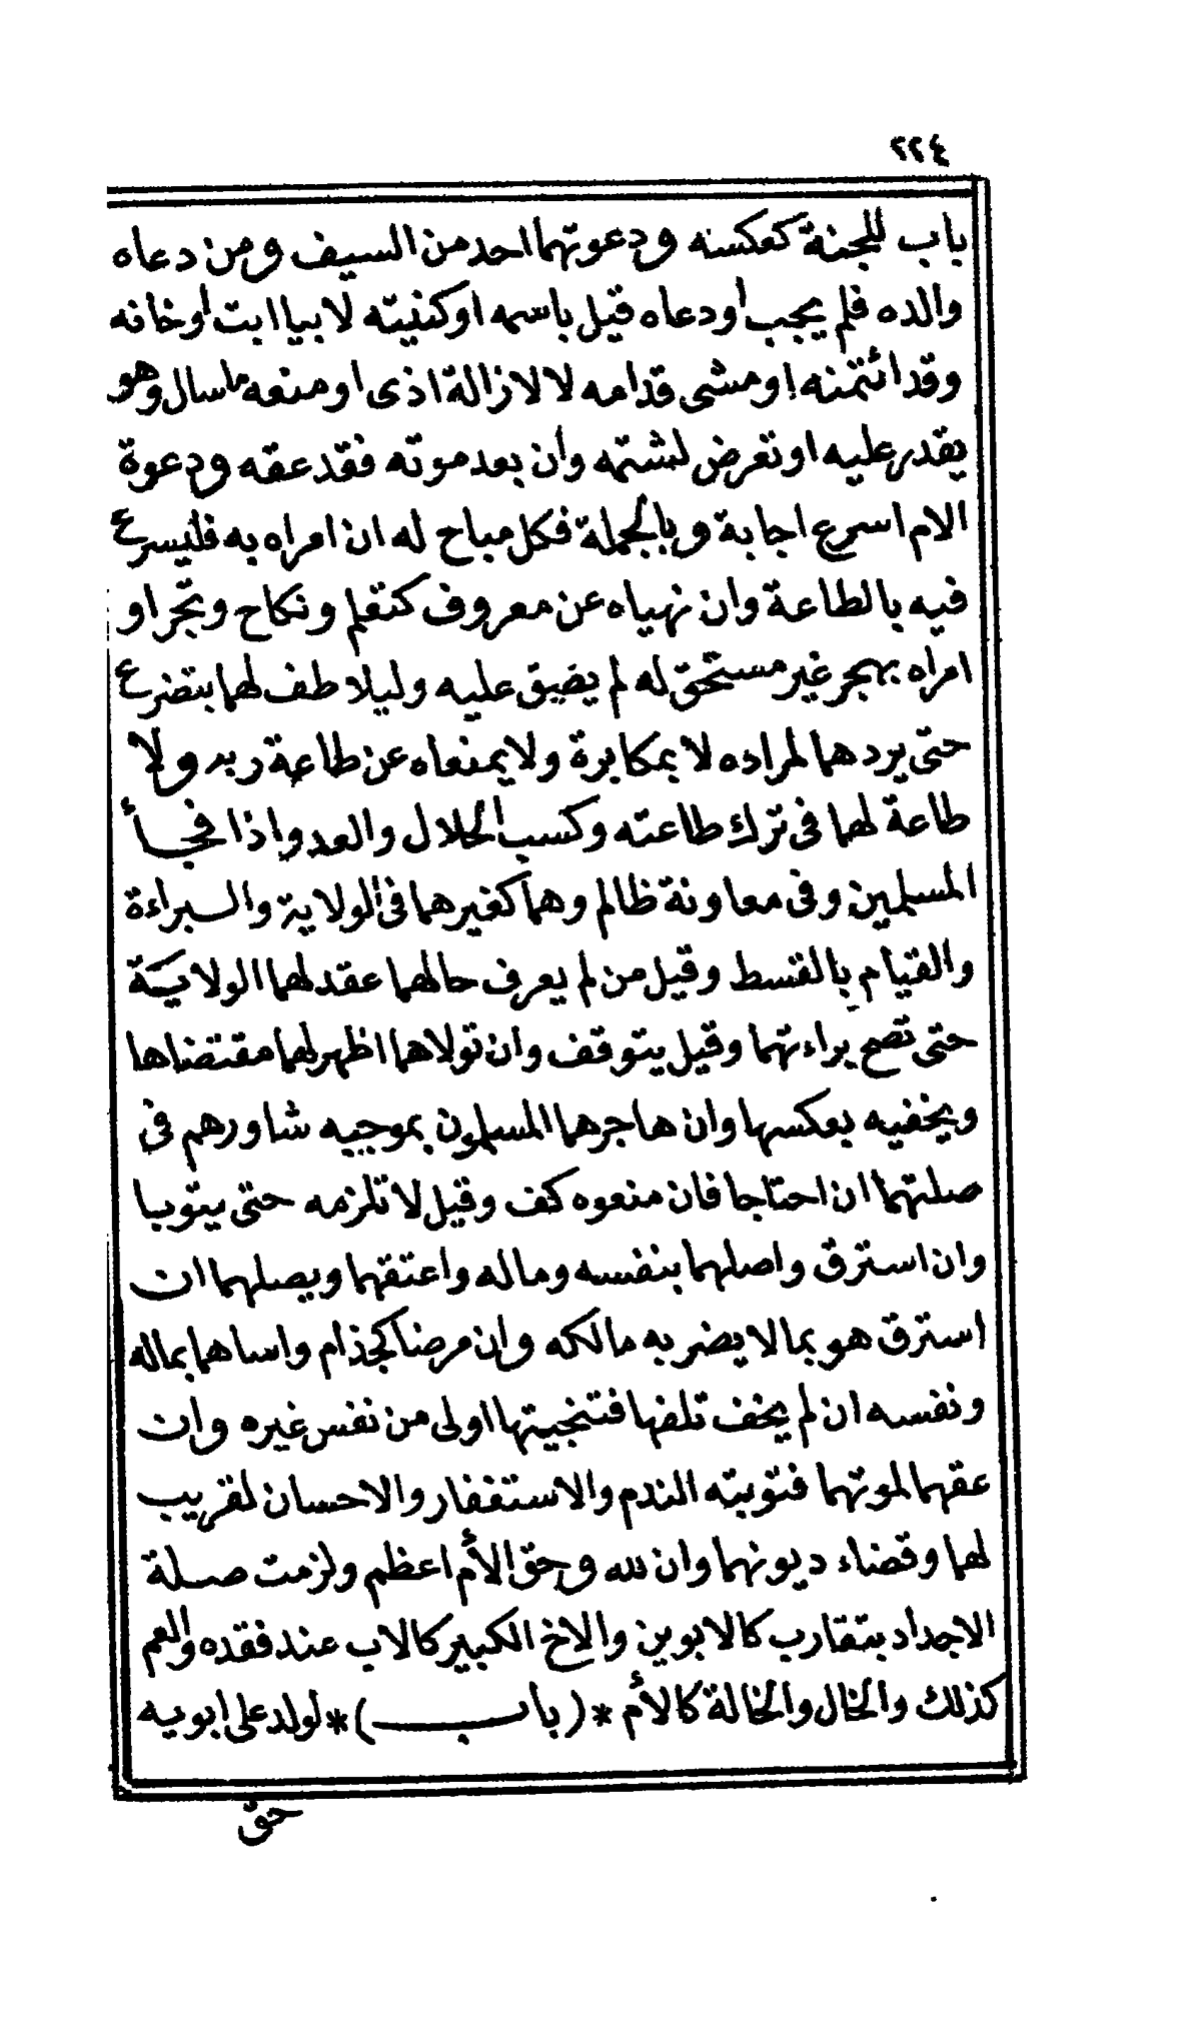 ٢٢٤
باب للجنة كعكسنه ودعوتهما احد من السيف ومن دعاه
والده فلم يجب او دعاه قيل باسمه او كنيته لا بيا ابت او خانه
وقد ائتمنه او مشى قدامه لا لازالة اذى او منعه ما سال وهو
يقدر عليه او تعرض لشتمه وان بعد موته فقد عقه ودعوة
الام اسرع اجابة وبالجملة فكل مباح له ان امراه به فليسرع
فيه بالطاعة وان نهياه عن معروف كتعلم ونكاح وتجر او
امراه بهجر غير مستحق له لم يضيق عليه وليلاطف لهما بتضرع
حتى يردهما لمراده لا بمكابرة ولا يمنعاه عن طاعة ربه ولا
طاعة لهما فى ترك طاعته وكسب الحلال والعدو اذا فجأ
المسلمين وفى معاونة ظالم وهما كغيرهما فى الولاية والبراءة
والقيام بالقسط وقيل من لم يعرف حالهما عقد لهما الولاية
حتى تصح براءتهما وقيل يتوقف وان تولاهما اظهر لهما مقتضاها
ويخفيه بعكسها وان هاجرهما المسلمون بموجبه شاورهم فى
صلتهما ان احتاجا فان منعوه كف وقيل لا تلزمه حتى يتوبا
وان استرق واصلهما بنفسه وماله واعتقهما ويصلهما ان
استرق هو بما لا يضر به مالكه وان مرضا كجذام واساهما بماله
ونفسه ان لم يخف تلفها فتنجيتها اولى من نفس غيره وان
عقهما لموتهما فتوبته الندم والاستغفار والاحسان لقريب
لهما وقضاء ديونهما وان لله وحق الأم اعظم ولزمت صلة
الاجداد بتقارب كالابوين والاخ الكبير كالاب عند فقده والعم
كذلك والخال والخالة كالأم *(باب)* لولد على ابويه
حق